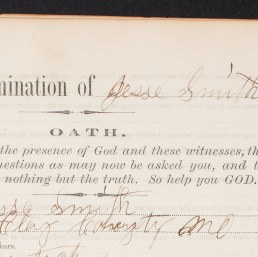 mination of Jesse Smith
OATH.
the presence of God and these witnesses, th
uestions as may now be asked you, and t
nothing but the truth. So help you GOD.
sse Smith
Clay County Mo